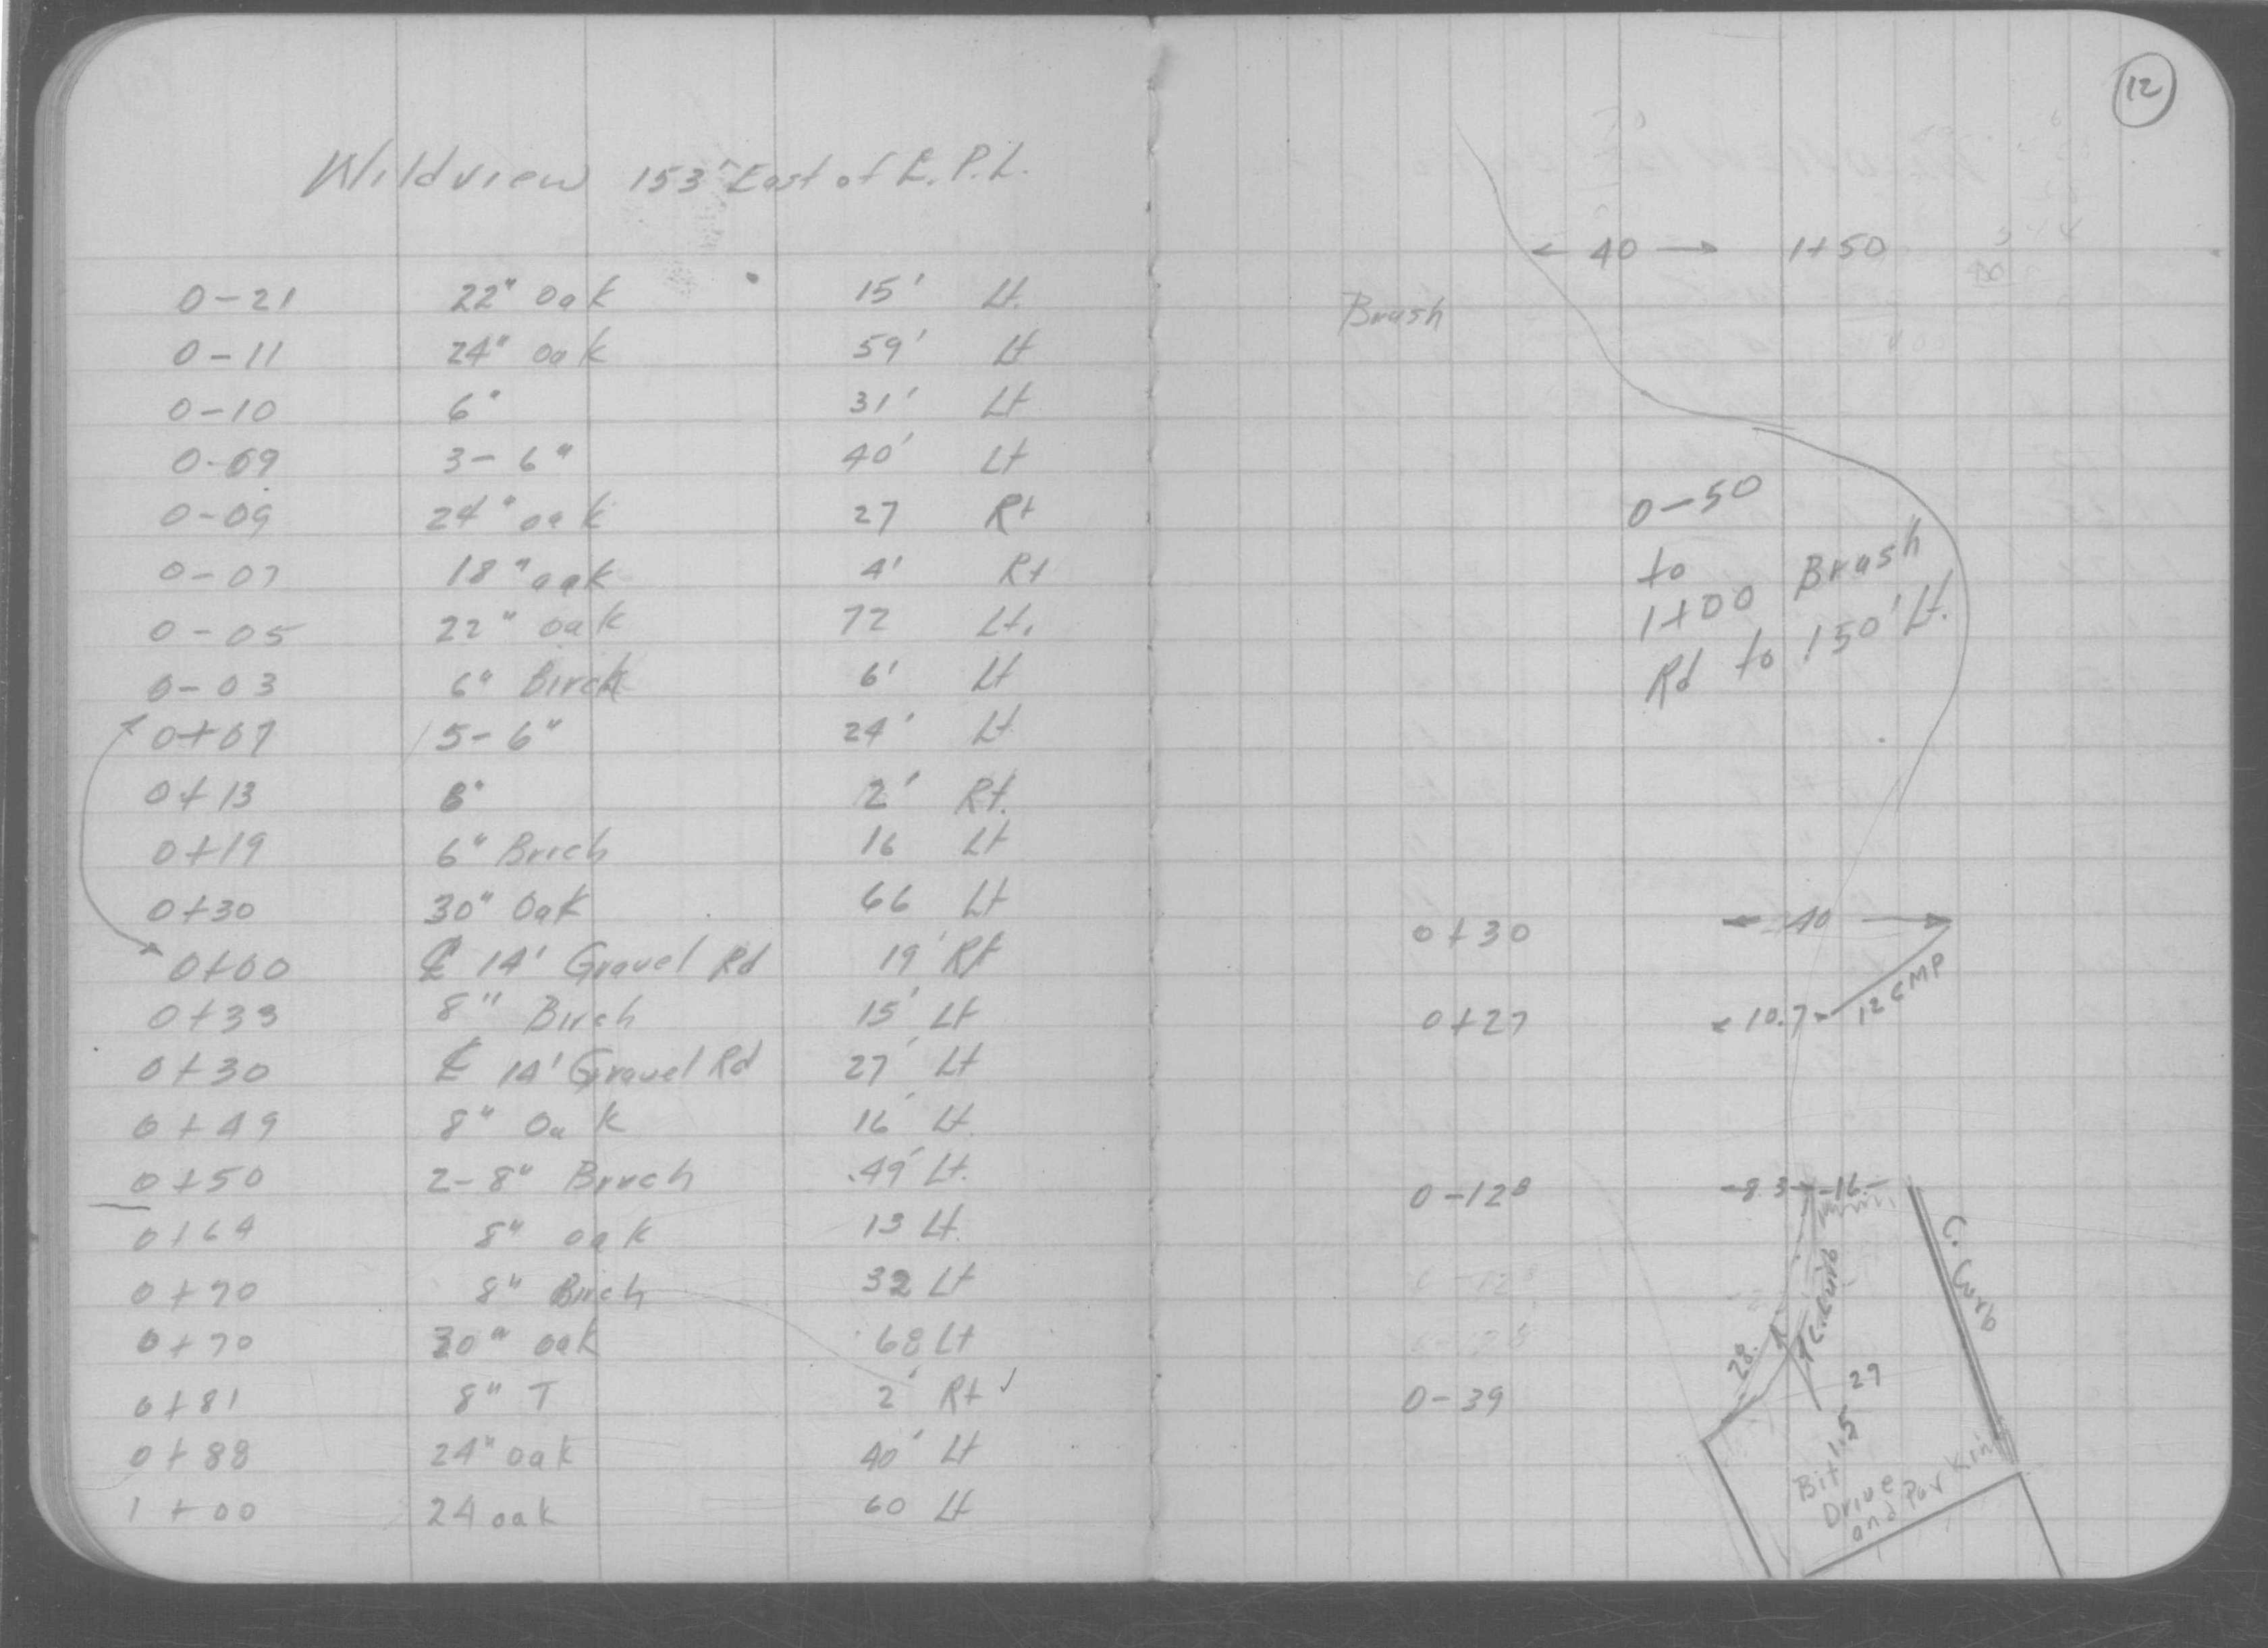 Wildview 153' East of E. P.L.
0-21 22" Oak 15' Lt.
0-11 24" Oak 59' Lt
0-10 6" 31' Lt
0-09 3-6" 40' Lt
0-09 24" oak 27 Rt
0-07 18" oak 4' Rt
0-05 22" oak 72 Lt.
0-03 6" Birch 6' Lt
0+07 5-6" 24' Lt
0+13 8" 2' Rt.
0+19 6" Birch 16 Lt
0+30 30" Oak 66 Lt
0+00 ℄ 14' Gravel Rd 19' Rt
0+33 8" Birch 15' Lt
0+30 ℄ 14' Gravel Rd 27' Lt
0+49 8" Oak 16' Lt
0+50 2-8" Birch 49' Lt.
0+64 8" oak 13 Lt
0+70 8" Birch 32 Lt
0+70 30" oak 68 Lt
0+81 8" T 2' Rt ✓
0+88 24" oak 40' Lt
1+00 24 oak 60 Lt
12
40 1+50
Brush
0-50
to
1+00 Brush
Rd to 150' Lt.
0+30 40
0+27 10.7 12 CMP
0-12⁸ 8.3 16
C. Curb
C. Curb
28
0-39 27
Bit
Drive
and Parking